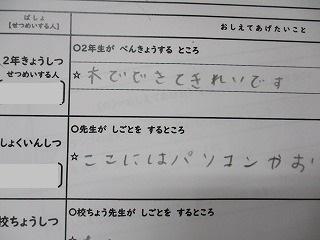 ばしょ
【せつめいする人】
おしえてあげたいこと
2年きょうしつ
〇2年生が べんきょうする ところ
☆木でできてきれいです
しょくいんしつ
〇先生が しごとを するところ
☆ここにはパソコンがお
校ちょうしつ
〇校ちょう先生が しごとを する ところ
☆